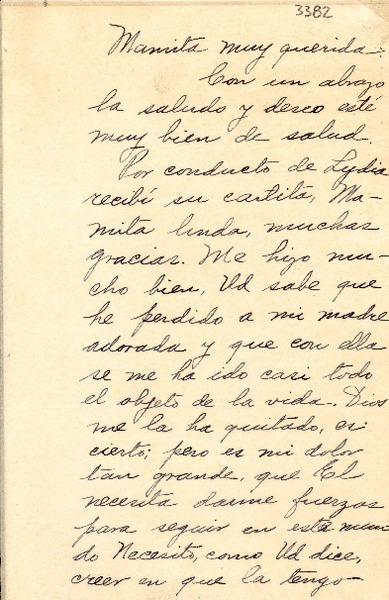 3382
Mamita muy querida:
Con un abrazo
la saludo y deseo esté
muy bien de salud.
Por conducto de Lydia
recibí su cartita, Ma-
mita linda, muchas
gracias. Me hizo mu-
cho bien, Ud sabe que
he perdido a mi madre
adorada y que con ella
se me ha ido casi todo
el objeto de la vida. Dios
me la ha quitado, es
cierto; pero es mi dolor
tan grande, que El
necesita darme fuerzas
para seguir en este mun-
do Necesito, como Ud dice,
creer en que la tengo-